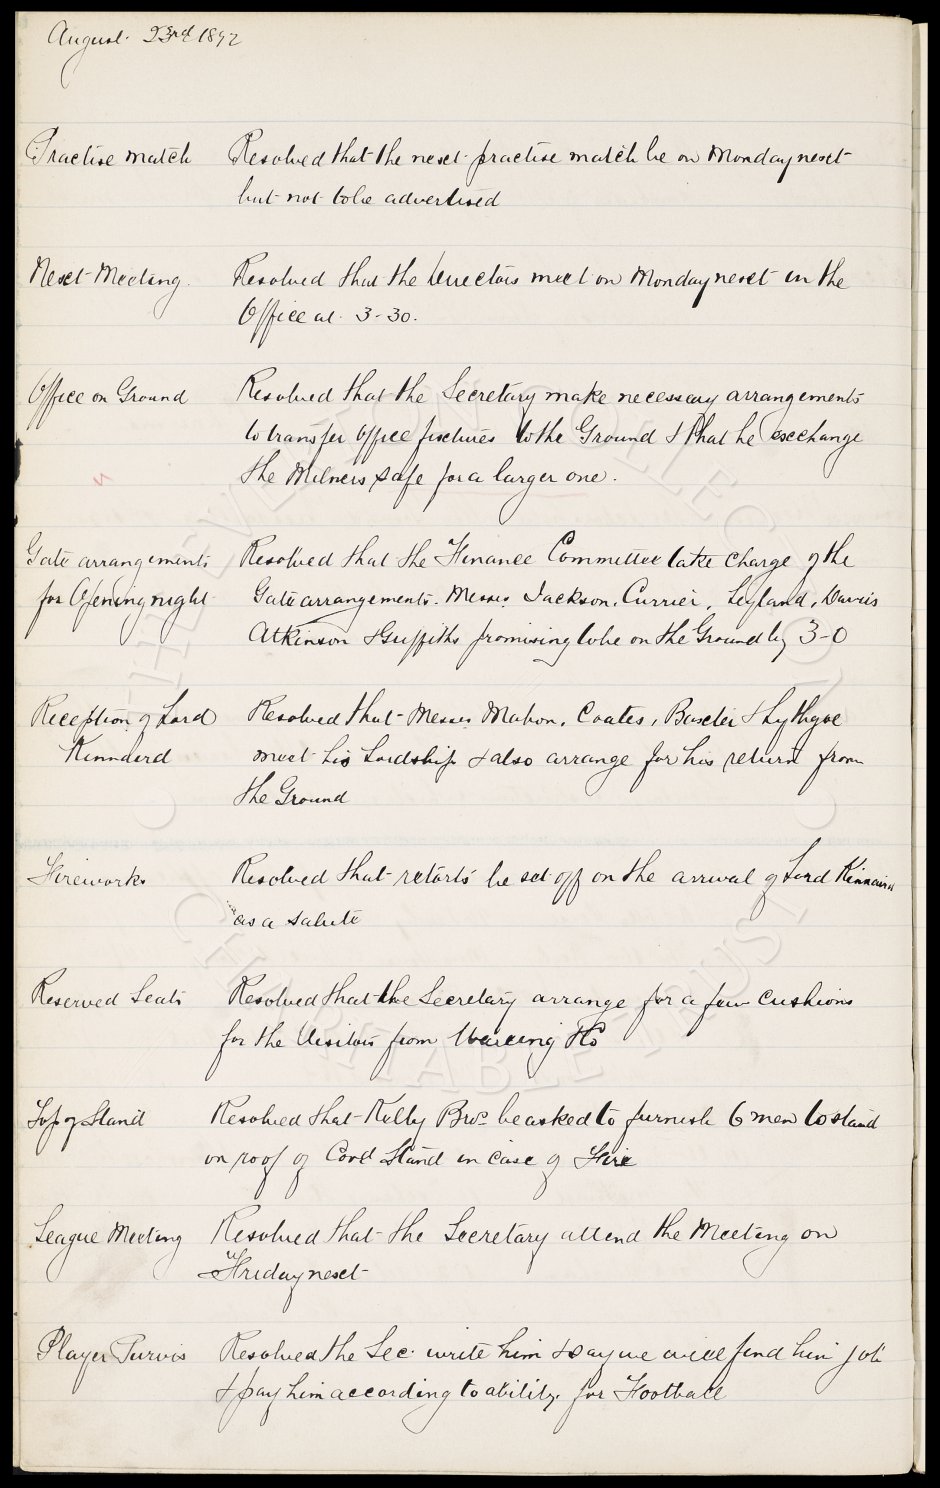 August 23rd 1892
Practise match Resolved that the next practise match be on Monday next
but not to be advertised
Next Meeting. Resolved that the Directors meet on Monday next in the
Office at 3-30.
Office on Ground Resolved that the Secretary make necessary arrangements
to transfer office fixtures to the Ground & that he exchange
the Milners safe for a larger one.
Gate arrangements Resolved that the Finance Committee take charge of the
for Opening night Gate arrangements. Messrs Jackson, Currier, Leyland, Davies
Atkinson & Griffiths promising to be on the Ground by 3-0
Reception of Lord Resolved that Messrs Mahon, Coates, Baxter & Lythgoe
Kinnderd meet his Lordship & also arrange for his return from
the Ground
Fireworks Resolved that retorts be set off on the arrival of Lord Kinnaird
as a salute
Reserved Seats Resolved that the Secretary arrange for a few cushions
for the Visitors from & Co
Top of Stand Resolved that Kelly Bros. be asked to furnish 6 men to stand
on roof of Cov'd Stand in case of Fire
League Meeting Resolved that the Secretary attend the Meeting on
Friday next
Player Purvis Resolved the Sec. write him & say we will find him job
& pay him according to ability for Football
THE EVERTON COLLECTION
CHARITABLE TRUST